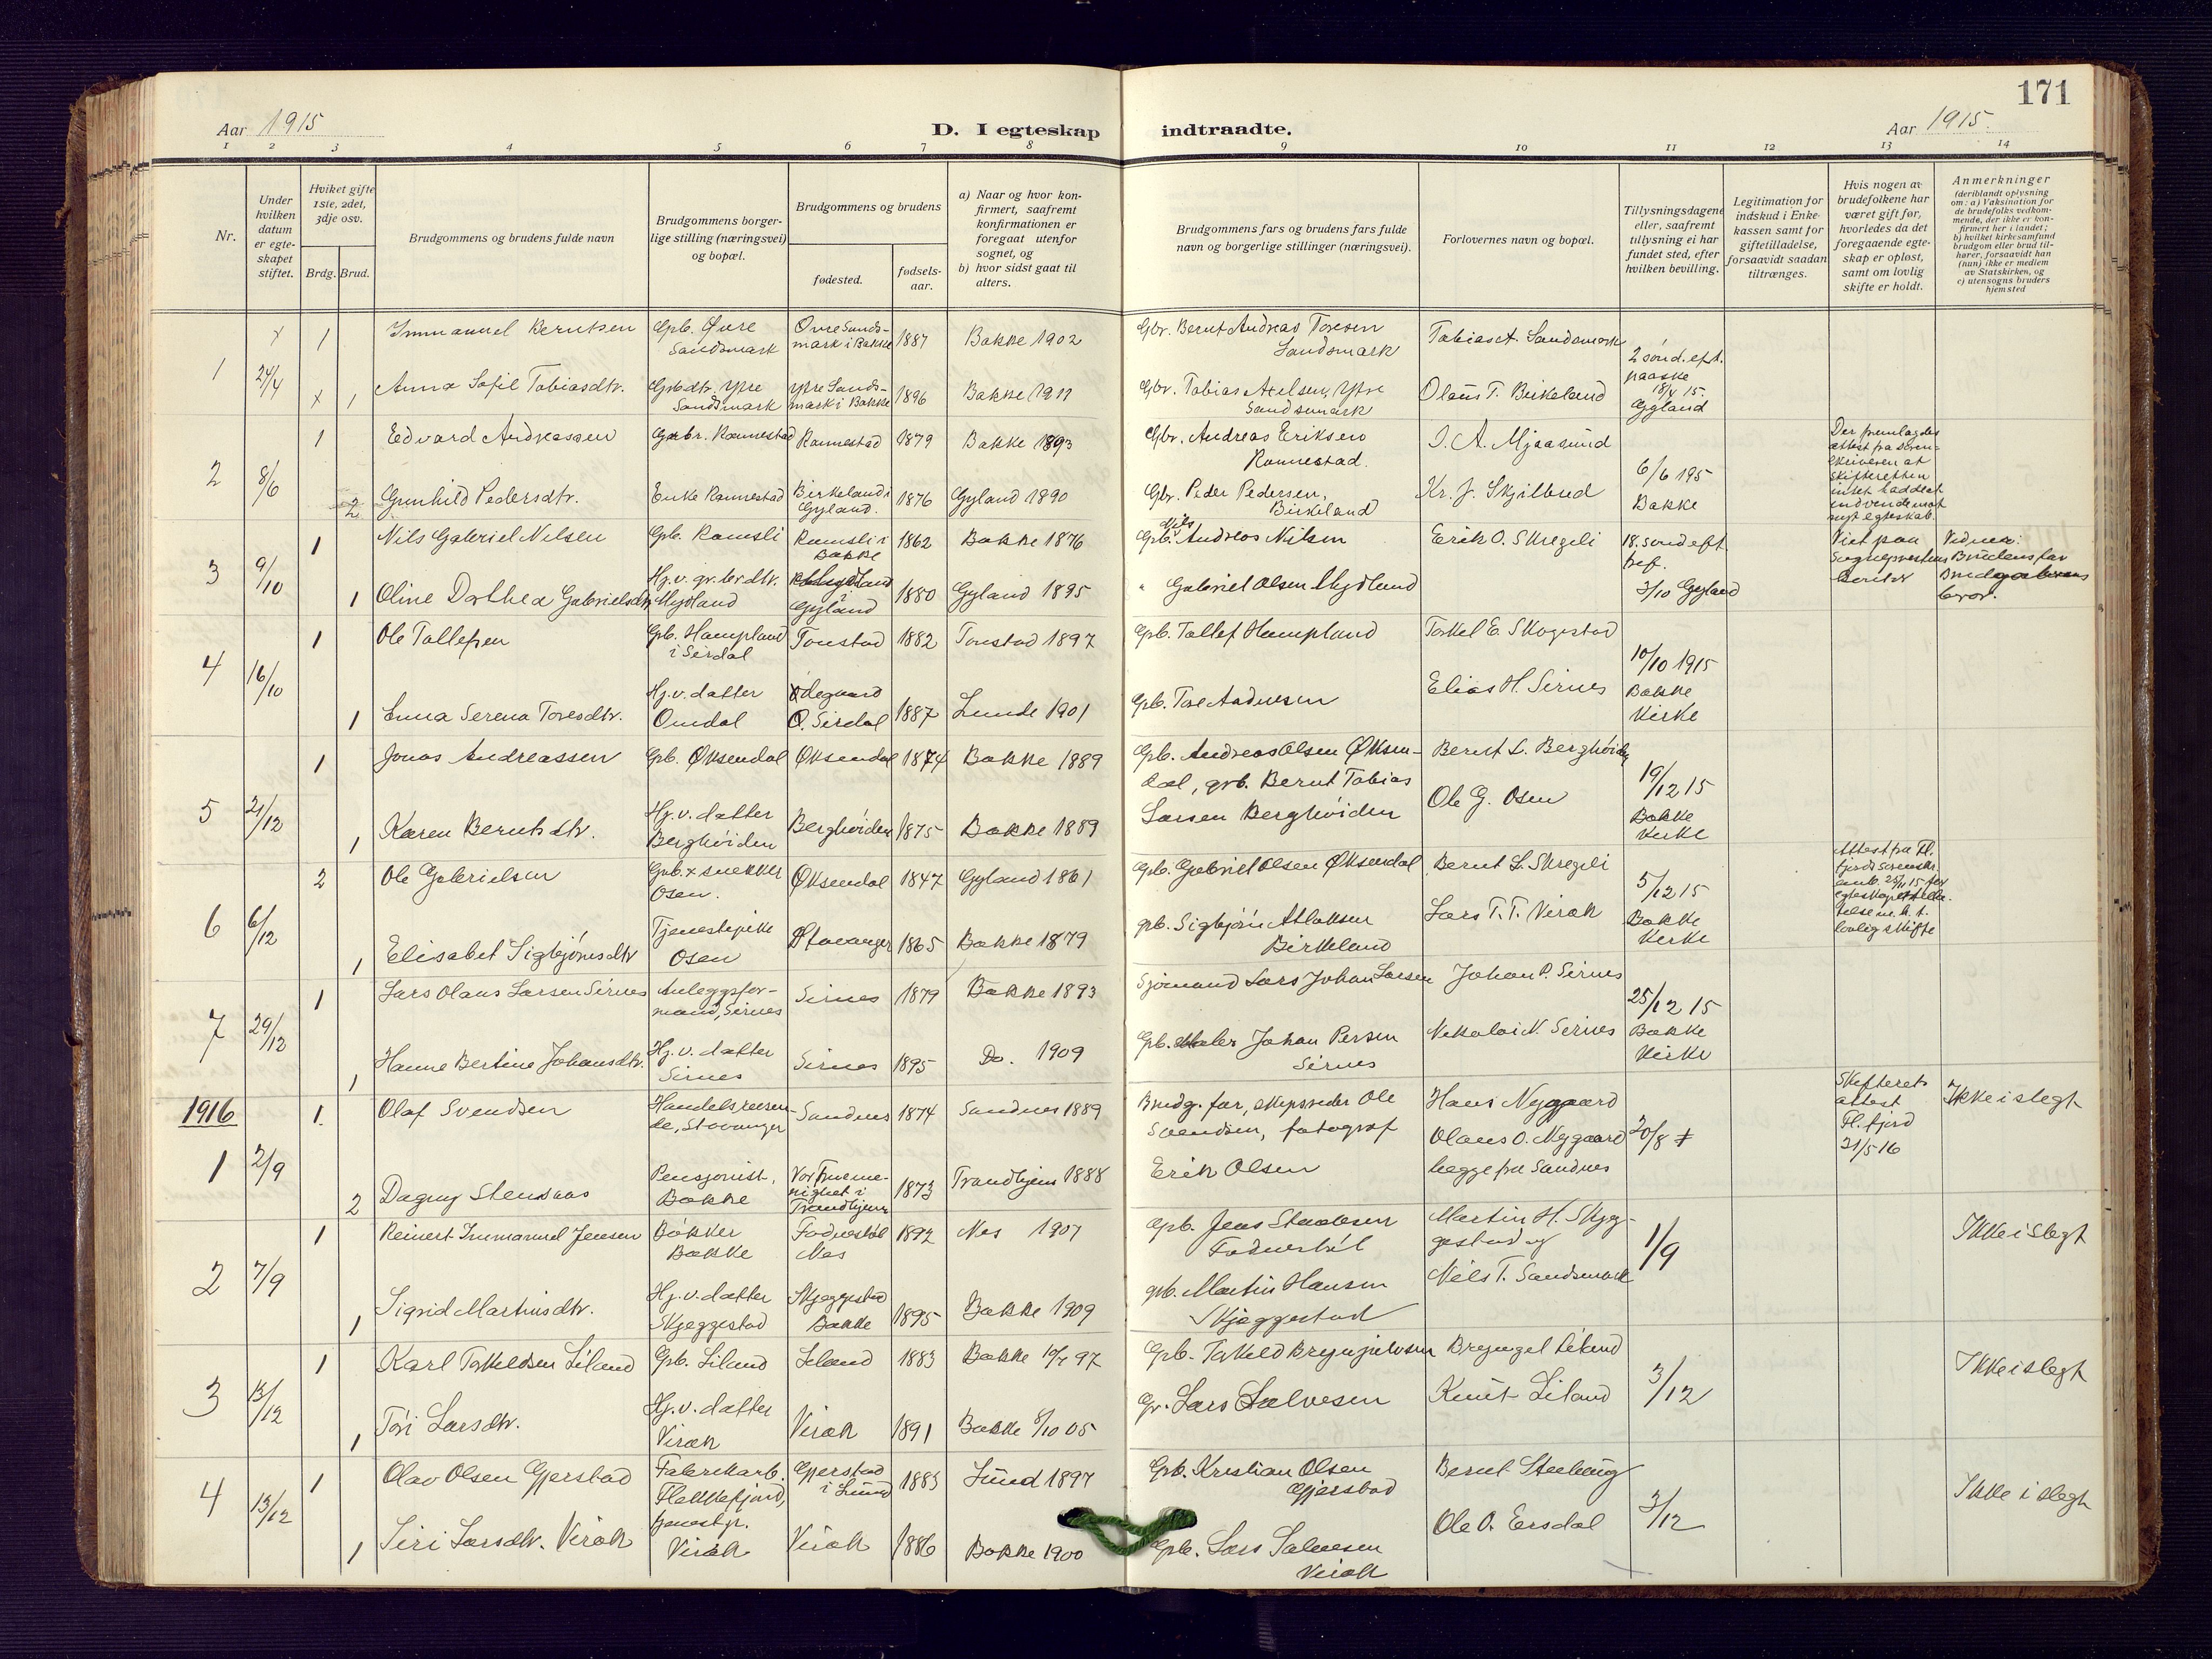 171
Aar 1915
D. I egteskap indtraadte.
Aar 1915.
1 2 3 4 5 6 7 8 9 10 11 12 13 14
Nr.
Under hvilken datum er egteskapet stiftet.
Hvilket gifte 1ste, 2det, 3dje osv.
Brdg. Brud.
Brudgommens og brudens fulde navn
Brudgommens borgerlige stilling (næringsvei) og bopæl.
Brudgommens og brudens
fødested.
fødselsaar.
a) Naar og hvor konfirmert, saafremt konfirmationen er foregaat utenfor sognet, og
b) hvor sidst gaat til alters.
Brudgommens fars og brudens fars fulde navn og borgerlige stillinger (næringsvei).
Forlovernes navn og bopæl.
Tillysningsdagene eller, saafremt tillysning ei har fundet sted, efter hvilken bevilling.
Legitimation for indskud i Enkekassen samt for giftetilladelse, forsaavidt saadan tiltrænges.
Hvis nogen av brudefolkene har været gift før, hvorledes da det foregaaende egteskap er opløst, samt om lovlig skifte er holdt.
Anmerkninger
(deriblandt oplysning om: a) Vaksination for de brudefolks vedkommende, der ikke er konfirmert her i landet;
b) hvilket kirkesamfund brudgom eller brud tilhører, forsaavidt han (hun) ikke er medlem av Statskirken, og
c) utensogns bruders hjemsted
1 24/4
x 1 Immanuel Berntsen Gpb. Øvre Sandsmark Øvre Sandsmark i Bakke 1887 Bakke 1902 Gbr. Bernt Andreas Toresen Sandsmark Tobias A. Sandsmark
x 1 Anna Sofie Tobiasdtr. Grbdtr. Ytre Sandsmark Ytre Sandsmark i Bakke 1896 Bakke 1911 Gbr. Tobias Axelsen, Ytre Sandsmark Olaus T. Birkeland
2 sönd. eft. paaske 18/4 15. Gyland
2 8/6
1 Edvard Andreassen Garbr. Rannestad Rannestad 1879 Bakke 1893 Gbr. Andreas Eriksen Rannestad. I. A. Mjaasund
2 Gunhild Pedersdtr. Enke Rannestad Birkeland i Gyland. 1876 Gyland 1890 Gbr. Peder Pedersen, Birkeland Kr. J. Skjilbred
6/6 195 Bakke
Der fremlagdes attest fra Sorenskriveren at skifteretten intet hadde at indvende mot nyt egteskab.
3 9/10
1 Nils Gabriel Nilsen Gpb. Ramsli Ramsli i Bakke 1862 Bakke 1876 Gpb. Nils Andreas Nilsen Erik O. Skregeli
1 Oline Dorthea Gabrielsdtr. Hj. v. gr. br. dtr. Mydland Mydland i Gyland 1880 Gyland 1895 " Gabriel Olsen Mydland
18. sønd eft. tref. 3/10 Gyland
Viet paa Sogneprestens kontor
Vidner: Brudens far Brudgommens bror.
4 16/10
1 Ole Tollefsen Gpb. Hampland i Sirdal Tonstad 1882 Tonstad 1897 Gpb. Tollef Haampland Torkel E. Skogestad
1 Enna Serena Toresdtr. Hj. v. datter Omdal Ødegaard Ø. Sirdal 1887 Lunde 1901 Gpb. Tore Andersen Elias H. Sirnes
10/10 1915 Bakke Kirke
5 21/12
1 Jonas Andreassen Gpb. Øksendal Øksendal 1874 Bakke 1889 Gpb. Andreas Olsen Øksendal, grb. Bernt Tobias Larsen Berghöiden Bernt L. Berghöiden
1 Karen Berntsdtr. Hj. v. datter Berghöiden Berghöiden 1875 Bakke 1889 Ole G. Osen
19/12 15 Bakke Kirke
6 6/12
2 Ole Gabrielsen Gpb. & snekker Osen. Øksendal 1847 Gyland 1861 Gpb. Gabriel Olsen Øksendal Bernt L. Skregeli
1 Elisabet Sigbjörnsdtr Tjenestepike Osen Stavanger 1865 Bakke 1879 gpb. Sigbjörn Atlaksen Birkeland Lars T. T. Virak
5/12 15 Bakke Kirke
Attest fra Fl.fjords Sorenskr. emb. 25/11 15 for egteskaps m. h. t. lovlig skifte
7 29/12
1 Lars Olaus Larsen Sirnes Anleggsformand, Sirnes Sirnes 1879 Bakke 1893 Sjömand Lars Johan Larsen Johan P. Sirnes
1 Hanne Bertine Johansdtr. Hj. v. datter Sirnes Sirnes 1895 Do. 1909 Gpb. Maler Johan Persen Sirnes Nikolai N. Sirnes
25/12 15 Bakke Kirke
1916
1 2/9
1. Olaf Svendsen Handelsreisende, Stavanger Sandnes 1874 Sandnes 1889 Brudg. far, skipsreder Ole Svendsen, fotograf Hans Nygaard
2 Dagny Stensaas Pensjonist, Bakke Vor Frue menighet i Trondhjem 1873 Trondhjem 1888 Erik Olsen Olaus O. Nygaard begge fra Sandnes
20/8
Skifterets attest Fl.fjord 31/5 16
Ikke i slegt
2 7/9
1 Reinert Immanuel Jensen Bakker Bakke Fodnestöl Nes 1892 Nes 1907 Gpb. Jens Fodnestöl Martin H. Skjeggestad og
1 Sigrid Martinsdtr. Hj. v. datter Skjeggestad Skjeggestad Bakke 1895 Bakke 1909 gpb. Martin Hansen Skjeggestad Nils T. Sandsmark
1/9
Ikke i slegt
3 13/12
1 Karl Torkeldsen Liland Gpb. Liland Liland 1883 Bakke 10/7 97 Gpb. Torkeld Brynjulvsen Bryngel Liland
1 Tori Larsdtr. Hj. v. datter Virak Virak 1891 Bakke 8/10 05 Gr. Lars Salvesen Knut Liland
3/12
Ikke i slegt
4 13/12
1 Olav Olsen Gjerstad Fabrikarb. Flekkefjord, Gjerstad i Lund 1883 Lund 1897 Gpb. Kristian Olsen Gjerstad Bernt
1 Siri Larsdtr. Virak tjenestpr. Virak Virak 1886 Bakke 1900 Gpb. Lars Salvesen Virak Ole O. Eersdal
3/12
Ikke i slegt